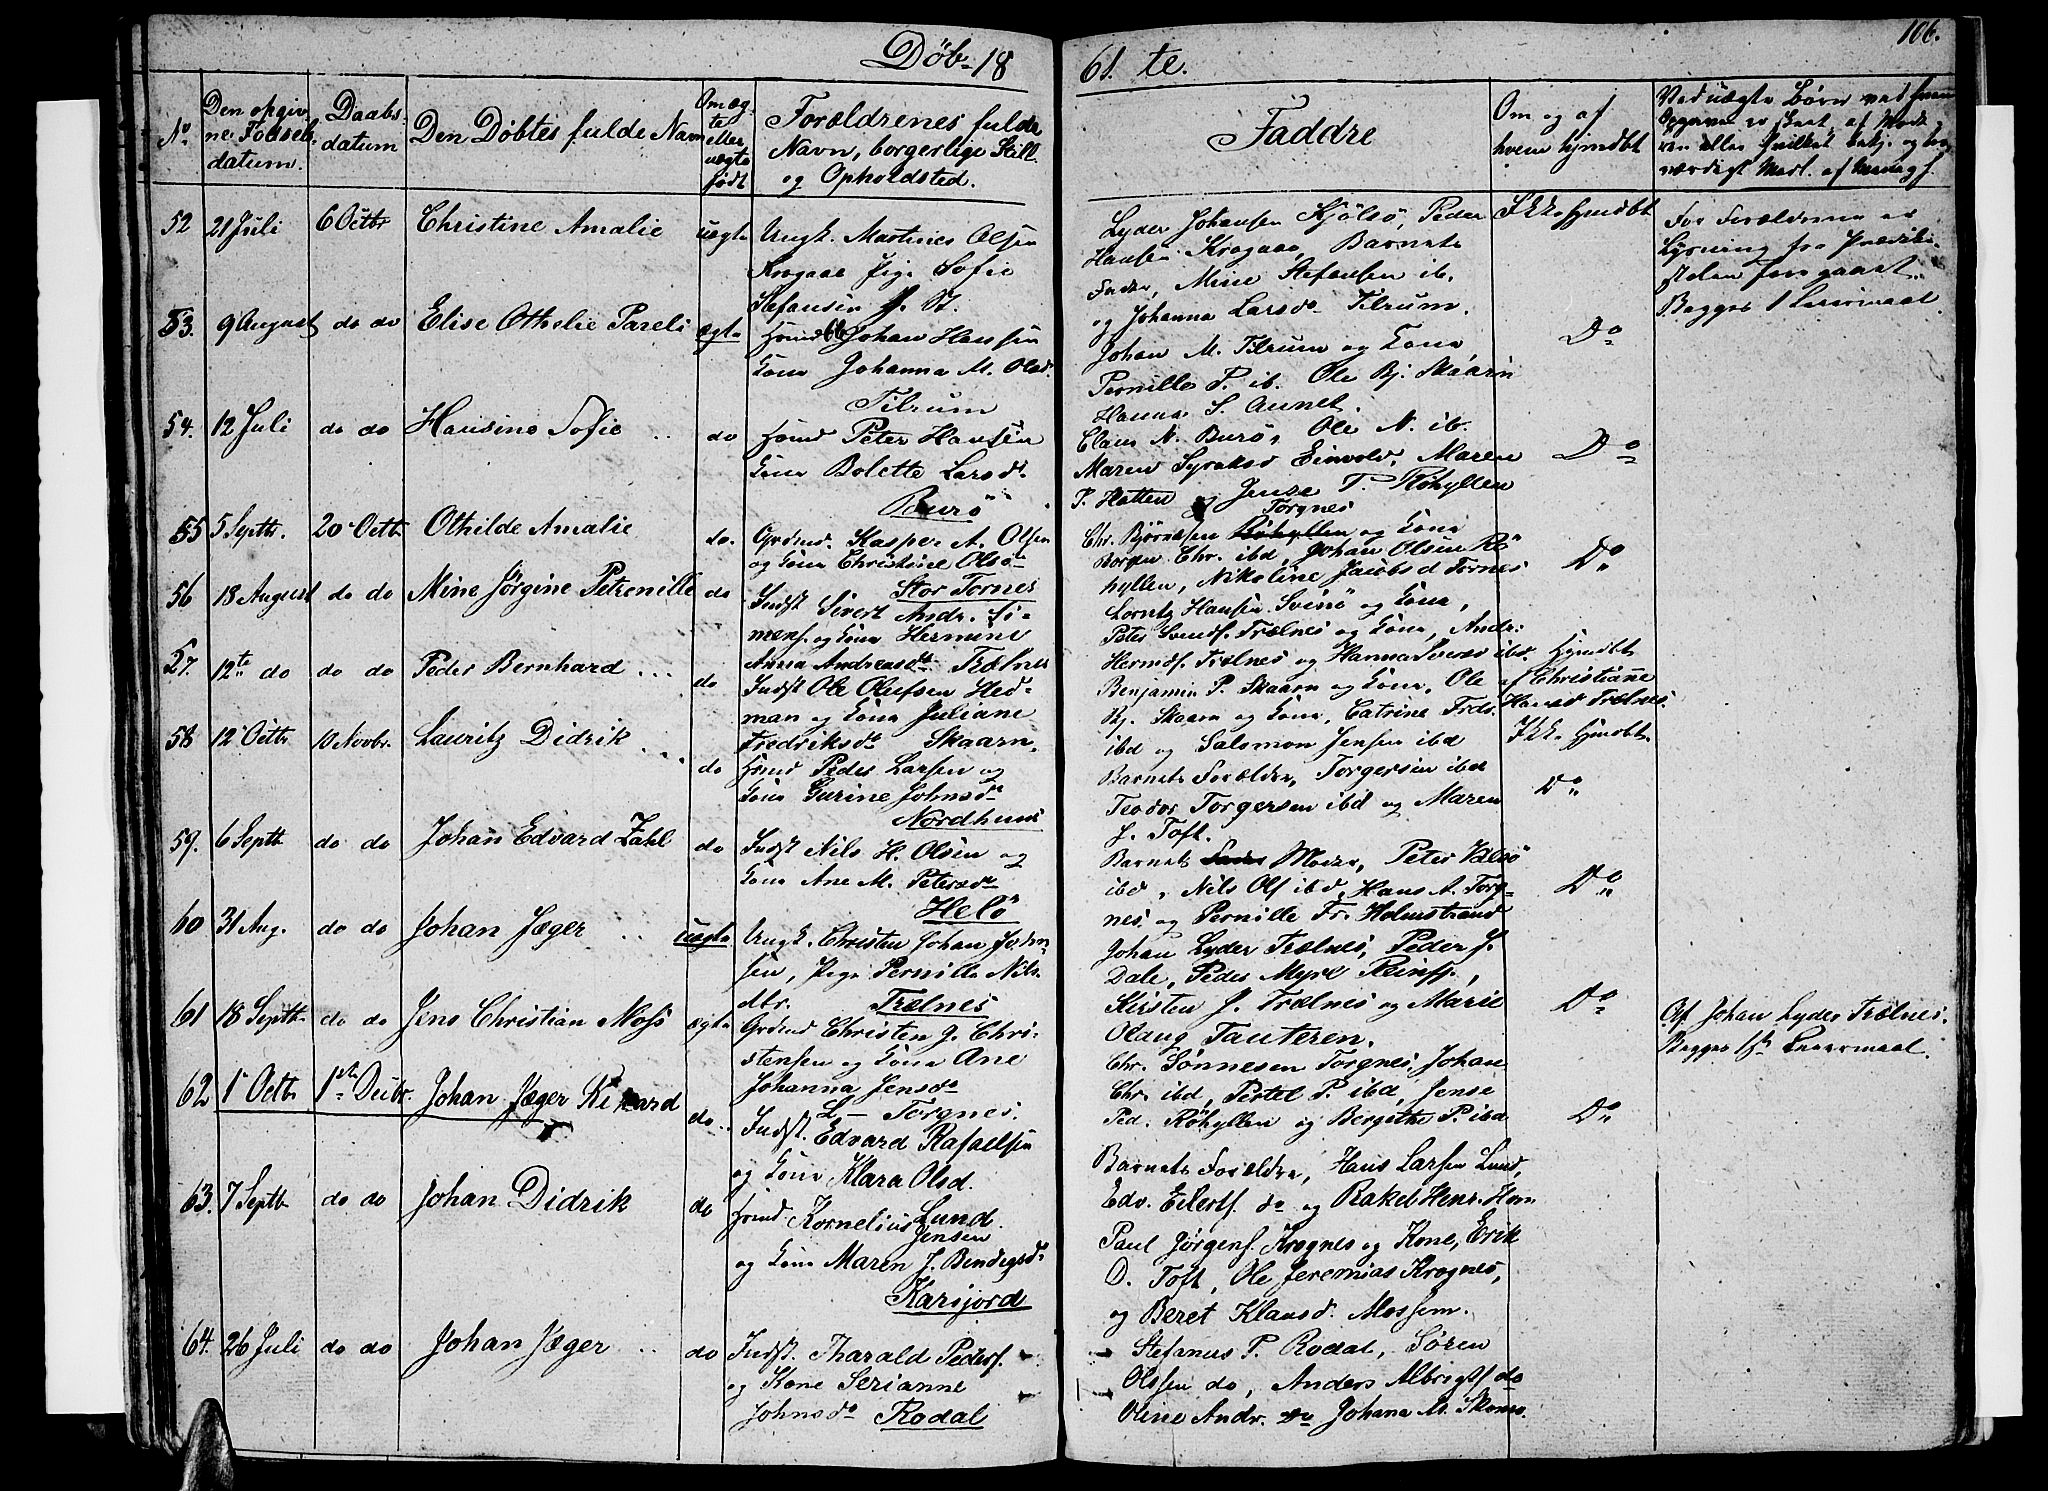 106.
Døb-18 61. te.
No
Den opgiv-
ne Fødsels
datum.
Daabs-
datum
Den Døbtes fulde Navn
Om æg-
te
eller
uægte
født
Forældrenes fulde
Navn, borgerlige Still.
og Opholdsted.
Faddre
Om og af
hvem hjmdbt
Ved uægte Børn
52 21 Juli 6 Octbr Christine Amalie uægte
Ungk. Martinus Olsen
Krogaae Pige Sofie
Stefansen
Lyder Johansen Kjölsö, Peder
Hansen Krogaae, Barnets
Fader, Mine Stefansen ib.
og Johanna Larsd. Tilrum.
Ikke hjmdbt
For Forældrene er
Lysning fra Prædike-
stolen foregaaet.
Begges 1 Leiermaal.
53. 9 August do do Elise Othelie Pareli ægte
Johan Hansen
Kone Johanna M. Olsd.
Tilrum
Johan M. Tilrum og Kone,
Pernille P. ib. Ole Bj. Skaarn
Hanna S. Aunet.
Do
54. 12 Juli do do Hansine Sofie .. do
Hmd Peter Hansen
Kone Bolette Larsd.
Burö
Claus N. Burö, Ole N. ib.
Maren Syraksd Einvold, Maren
P. Hatten og Jense T. Röhyllen
Do
55 5 Septbr. 20 Octbr Othilde Amalie do.
Grdmd. Kasper A. Olsen
og Kone Christine Olsd
Stor Torgnes
Torgnes
Chr. Björnsen Röhyllen og Kone
Borgen Chr. ibd, Johan Olsen Rö
hyllen, Nikoline Jacobsd Torgnes
Do
56 18 August do do Mine Jørgine Petrenille do
Indst Sivert Andr. Si-
mens. og Kone Hermine
Anna Andreasdt Trælnes
Lorntz Hansen Svinö og Kone,
Peter Svends. Trælnes og Kone, Andr:
Herms. Trælnes og Hanna Peters ibd.
Hjmdbt
af Christiane
Hansd Trælnes
57. 12te do do do Peder Bernhard ... do
Indst Ole Olufsen Hed-
man og Kone Juliane
Fredriksdt Skaarn.
Benjamin P. Skaarn og Kone, Ole
Bj. Skaarn og Kone, Catrine Frds.
ibd og Salomon Jensen ibd
Ikke hjmdbt.
58 12 Octbr 10 Novbr. Lauritz Didrik ... do
Hmd Peder Larsen og
Kone Gurine Johnsdt
Nordhuus
Barnets Forældre, Torgersen ibd
Teodor Torgersen ibd og Maren
J. Toft.
Do
59. 6 Septbr do do Johan Edvard Zahl do
Indst Nils H. Olsen og
Kone Ane M. Petersdt
Helö
Barnets Fader Moder, Peter
ibd, Nils Ols ibd, Hans A. Torg-
nes og Pernille Fr. Holmstrand
Do
60 31 Aug. do do Johan Jæger .. uægte
Ungk. Christen Johan
sen, Pige Pernille Nils-
dtr. Trælnes
Johan Lyder Trælnes, Peder J.
Dale, Peder Myre Reinfj,
Kirsten J. Trælnes og Marie
Olaug Tauteren.
Do
Af Johan Lyder Trælnes.
Begges 1ste Leiermaal.
61 18 Septbr do do Jens Christian Moss ægte
Grdmd Christen J. Chri-
stensen og Kone Ane
Johanna Jensdt
L- Torgnes.
Chr. Sönnesen Torgnes, Johan
Chr. ibd, Pertel P. ibd, Jense
Ped. Röhyllen og Bergithe P. ibd
Do
62 1 Octbr 1ste Decbr. Johan Jæger Rikard do..
Indst. Edvard Rafaelsen
og Kone Klara Olsd.
Lund.
Barnets Forældre, Hans Larsen Lund,
Edv. Eilerts. do og Rakel Henr. Horn
63. 7 Septbr do do Johan Didrik do
Hmd Kornelius Jensen
og Kone Maren J. Bendigsdt
Karijord
Paul Jørgens. Krognes og Kone, Erik
D. Toft, Ole Jeremias Krognes,
og Beret Klausd. Mossem.
64. 26 Juli do do Johan Jæger .. do
Indst. Tharald Peders.
og Kone Serianne
Johnsdt Rodal
Stefanus P. Rodal, Sören
Olssen do, Anders Albrigts do
Oline Andr. do Johana M.